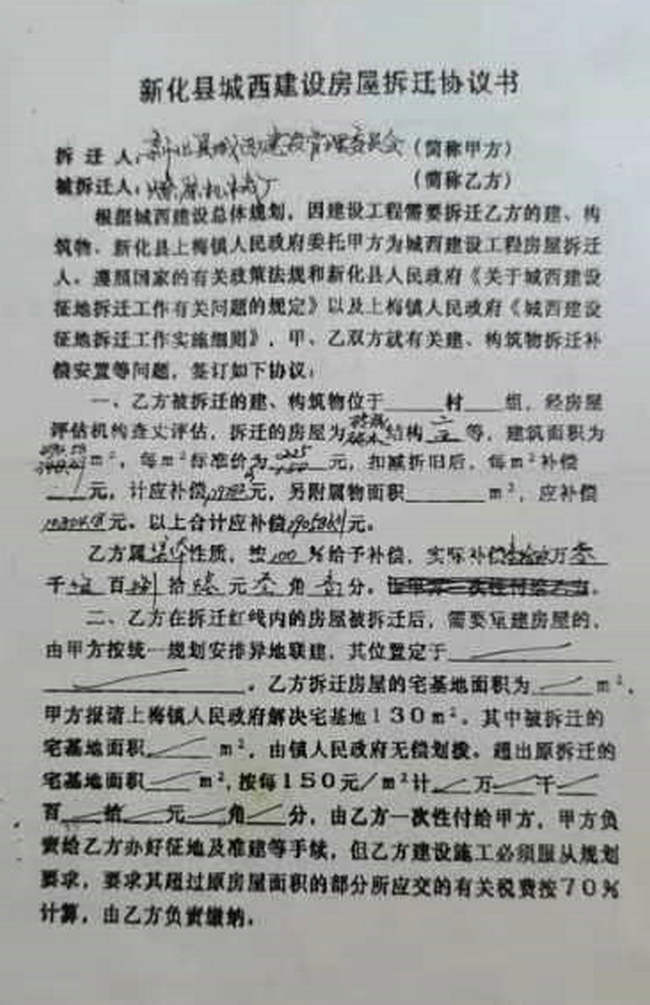 新化县城西建设房屋拆迁协议书
拆迁人：新化县城西建设管理委员会（简称甲方）
被拆迁人：（简称乙方）
根据城西建设总体规划，因建设工程需要拆迁乙方的建、构
筑物。新化县上梅镇人民政府委托甲方为城西建设工程房屋拆迁
人。遵照国家的有关政策法规和新化县人民政府《关于城西建设
征地拆迁工作有关问题的规定》以及上梅镇人民政府《城西建设
征地拆迁工作实施细则》，甲、乙双方就有关建、构筑物拆迁补
偿安置等问题，签订如下协议：
一、乙方被拆迁的建、构筑物位于 村 组，经房屋
评估机构查丈评估，拆迁的房屋为 结构 等，建筑面积为
m²，每m²标准价为 元，扣减折旧后，每m²补偿
元，计应补偿 元，另附属物面积 m²，应补偿
元。以上合计应补偿 元。
乙方属 性质，按100%给予补偿，实际补偿 万叁
千 百 拾 元叁角 分。
二、乙方在拆迁红线内的房屋被拆迁后，需要重建房屋的，
由甲方按统一规划安排异地联建，其位置定于
。乙方拆迁房屋的宅基地面积为 m²，
甲方报请上梅镇人民政府解决宅基地130m²。其中被拆迁的
宅基地面积 m²，由镇人民政府无偿划拨。超出原拆迁的
宅基地面积 m²，按每150元/m²计 万 千
百 拾 元 角 分，由乙方一次性付给甲方，甲方负
责给乙方办好征地及准建等手续，但乙方建设施工必须服从规划
要求，要求其超过原房屋面积的部分所应交的有关税费按70%
计算，由乙方负责缴纳。